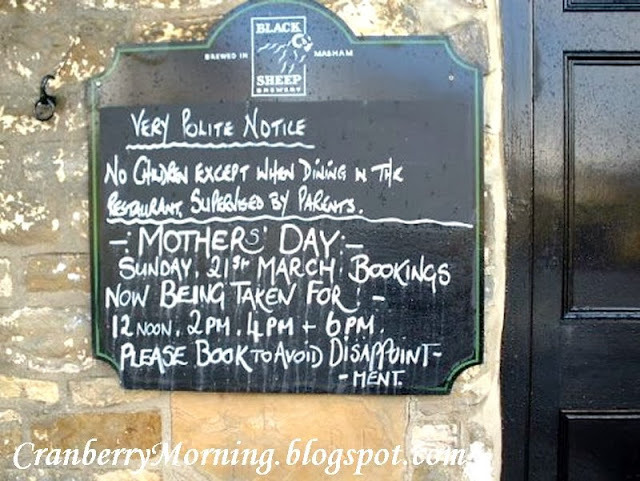 BLACK
BREWED IN MASHAM
SHEEP
BREWERY
VERY POLITE NOTICE
NO CHILDREN EXCEPT WHEN DINING IN THE
RESTAURANT, SUPERVISED BY PARENTS.
-: MOTHERS' DAY:-
SUNDAY, 21ST MARCH. BOOKINGS
NOW BEING TAKEN FOR: -
12 NOON, 2PM, 4PM + 6PM.
PLEASE BOOK TO AVOID DISAPPOINT-
-MENT.
CranberryMorning.blogspot.com